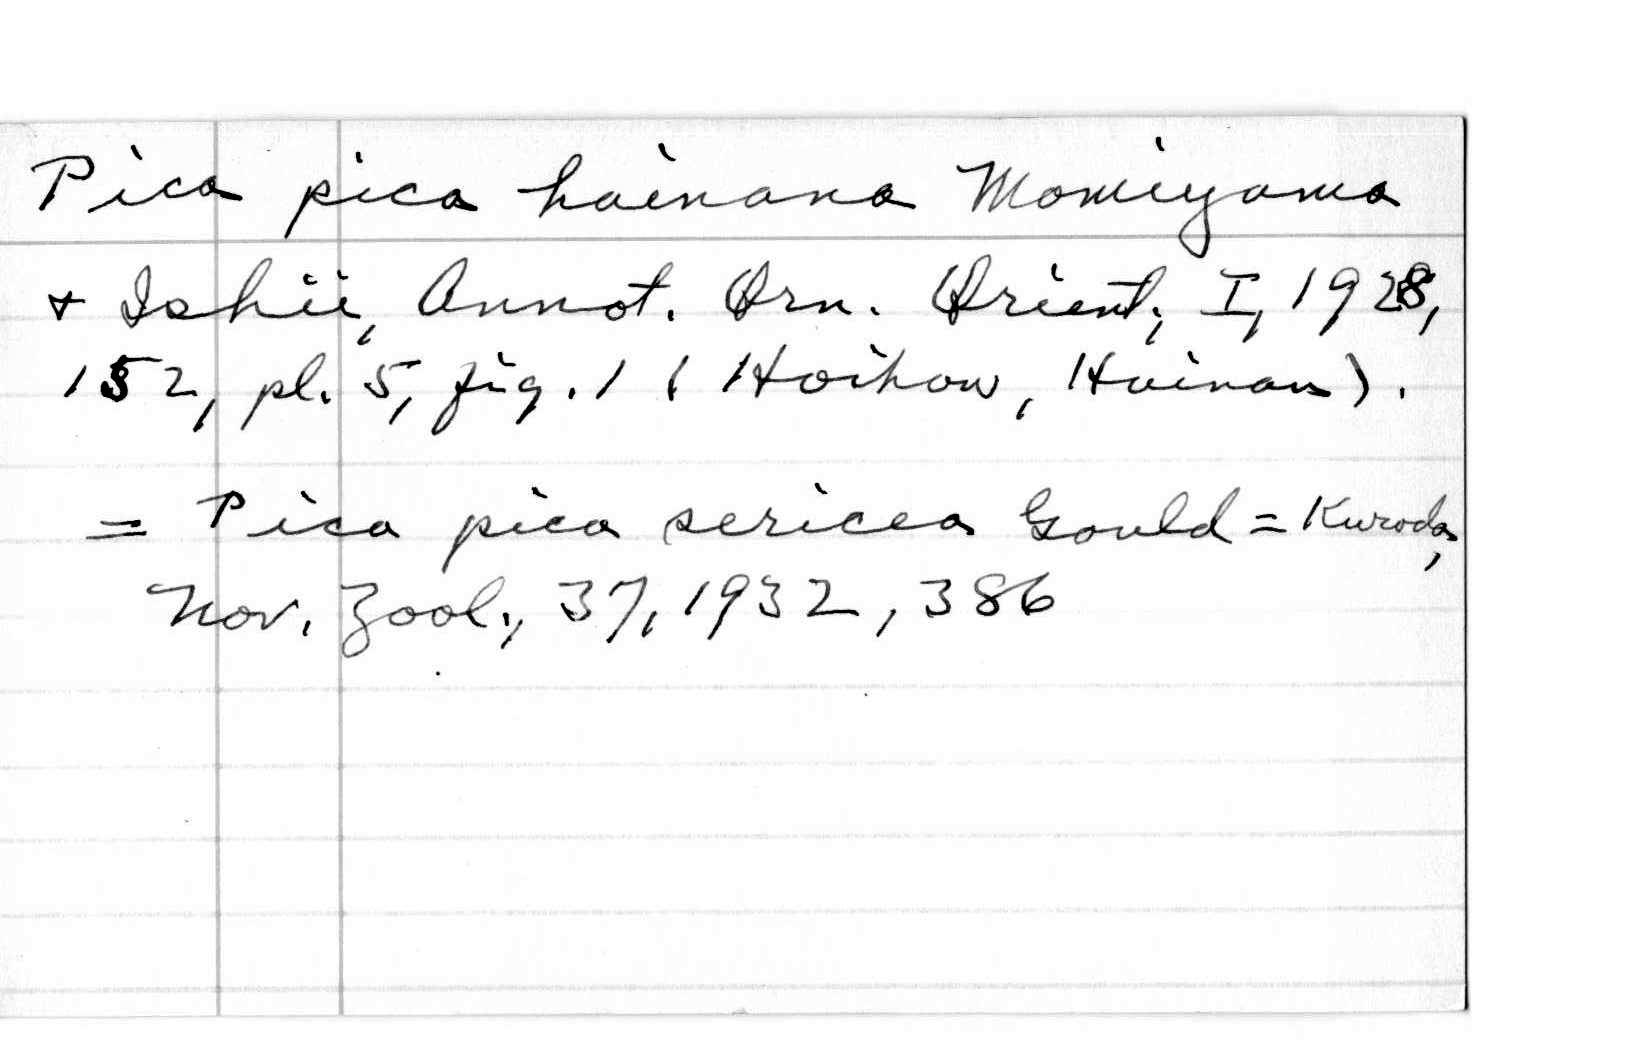 Pica pica hainana Momiyama
+ Ishii, Annot. Orn. Orient., I, 1928,
152, pl. 5, fig. 1 (Hoihow, Hainan).
= Pica pica sericea Gould = Kuroda,
Nov. Zool., 37, 1932, 386